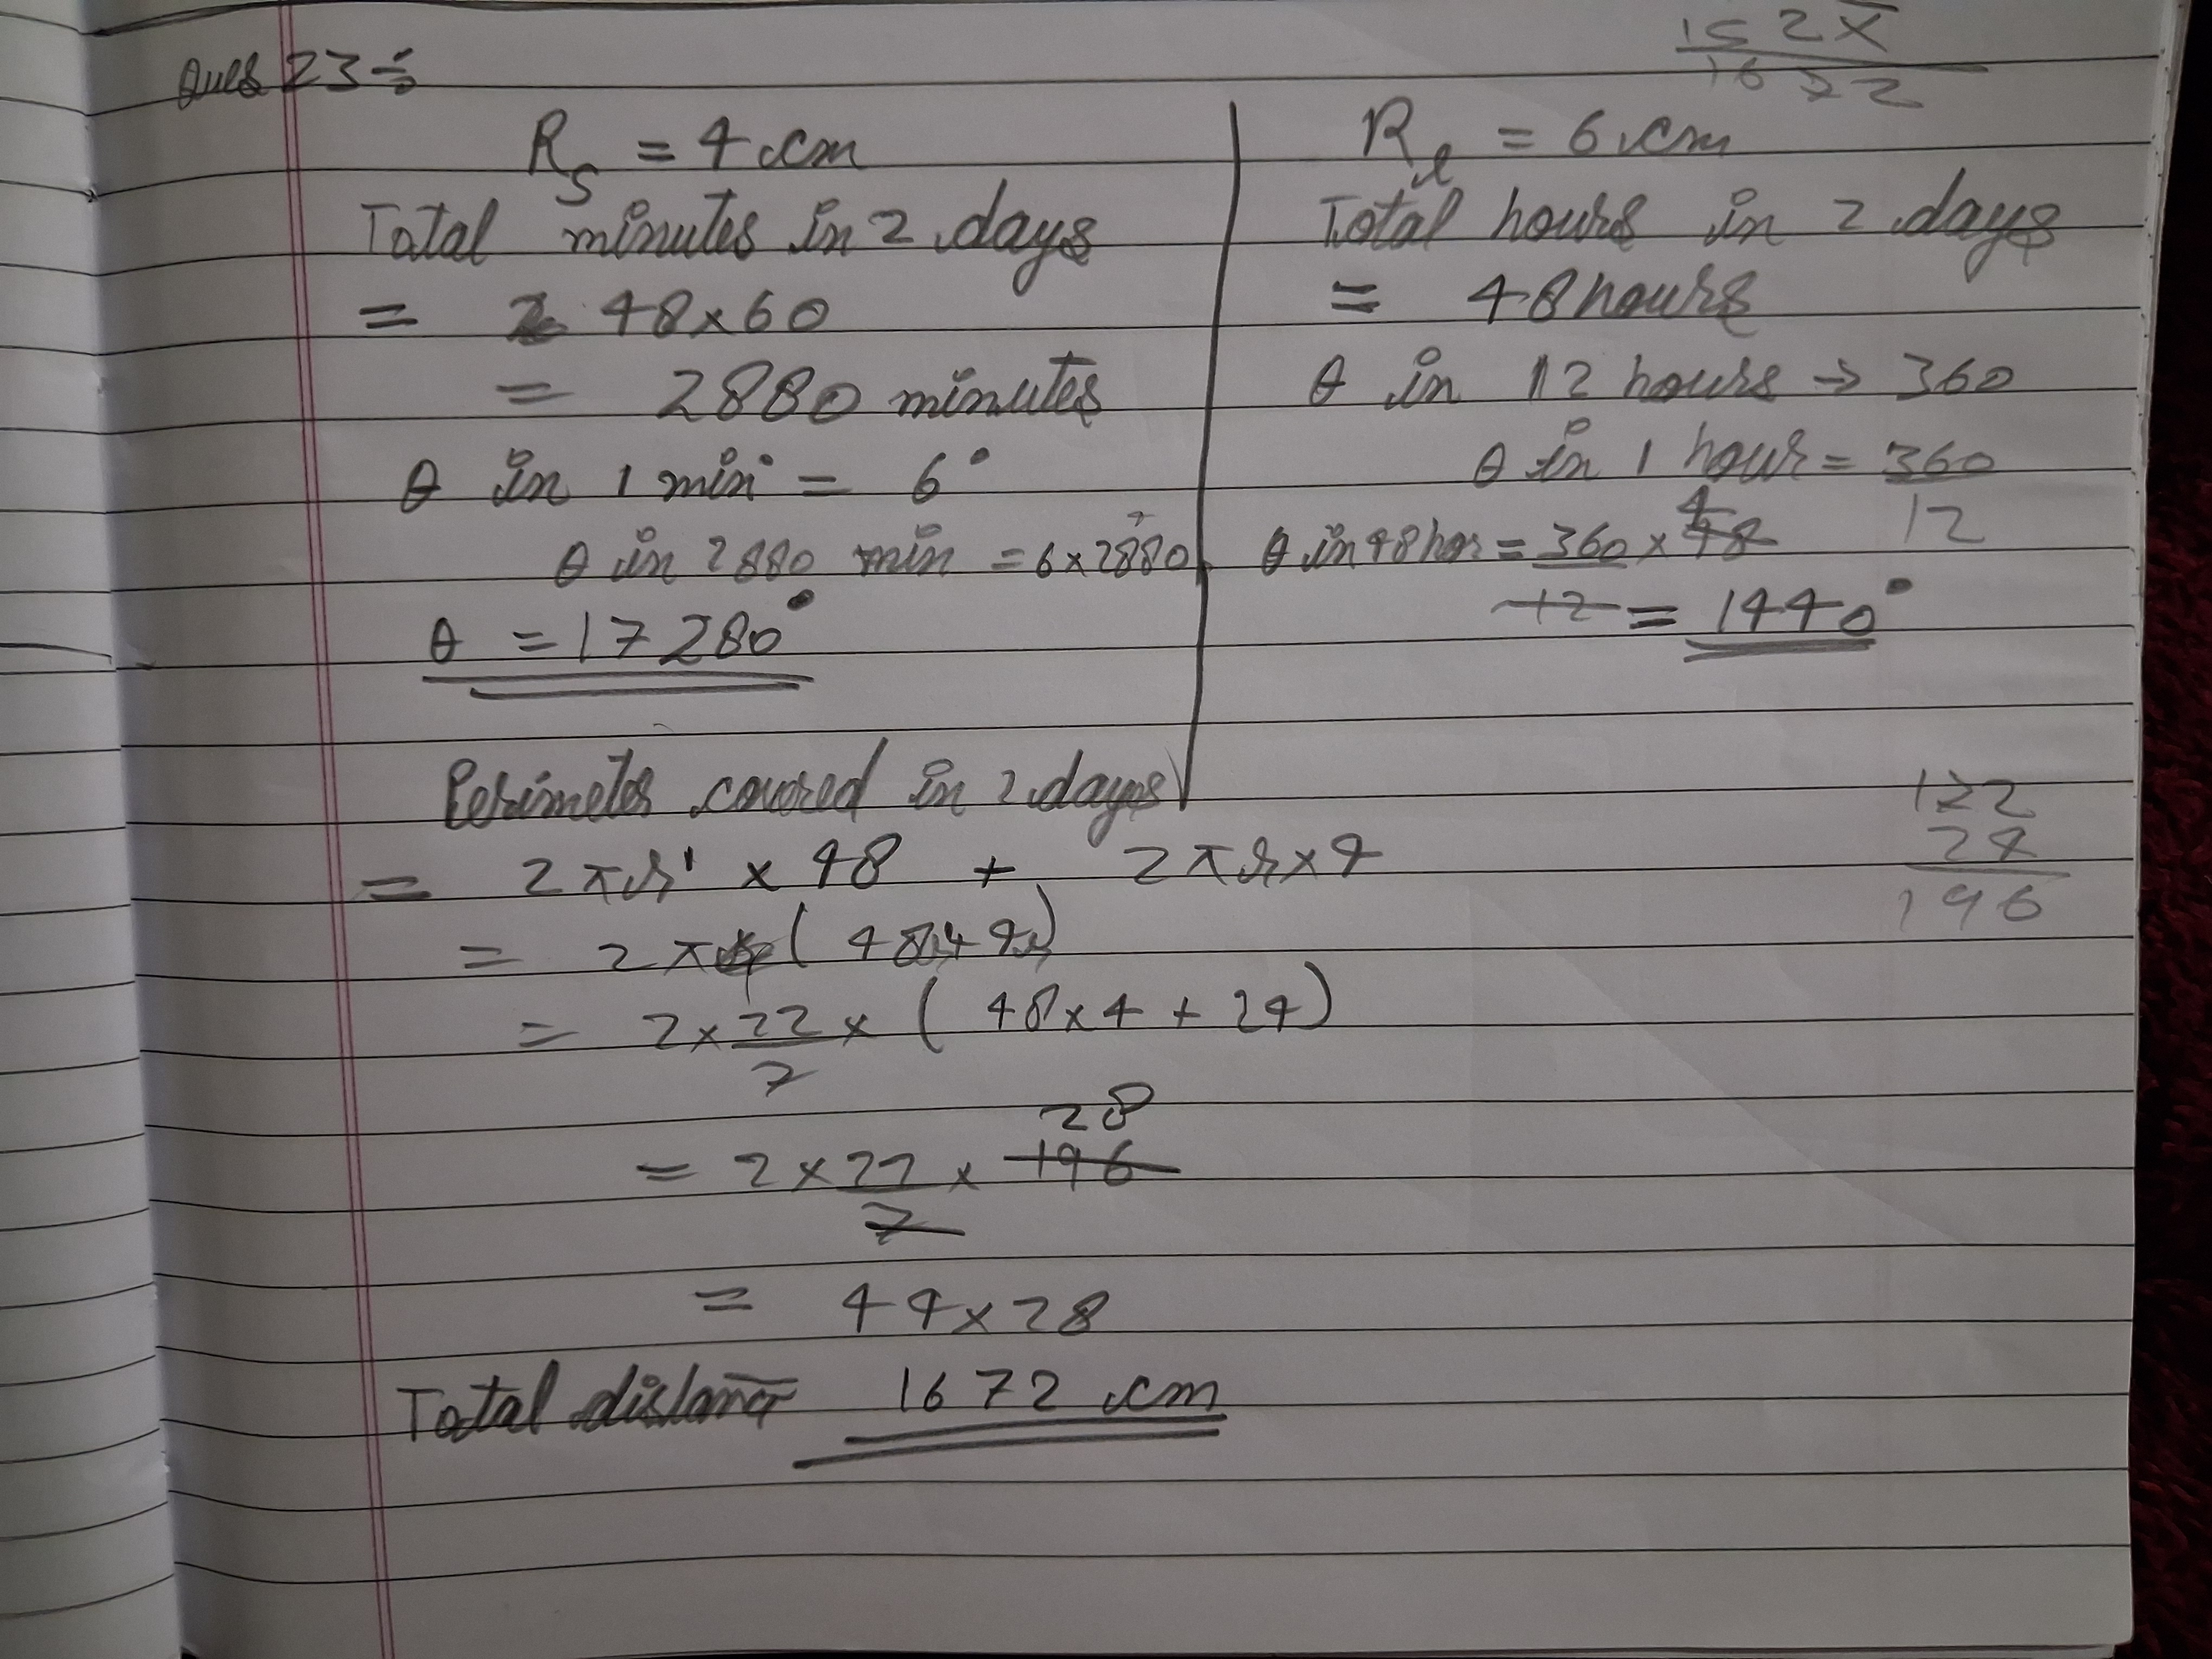 Ques 23÷
152X
1672
Rs = 4 cm
Total minutes in 2 days
= 48x60
= 2880 minutes
θ in 1 min = 6°
θ in 2880 min = 6x2880
θ = 17280°
Rl = 6 cm
Total hours in 2 days
= 48 hours
θ in 12 hours → 360
θ in 1 hour = 360/12
θ in 48 hor = 360/12 x 48 4
= 1440°
Perimeter covered in 2 days
= 2πr' x 48 + 2πrx4
= 2π (48r+4r)
= 2x22/7 x (48x4 + 24)
= 2x22/7 x 196 28
= 44x28
Total distance 1672 cm
122
24
196